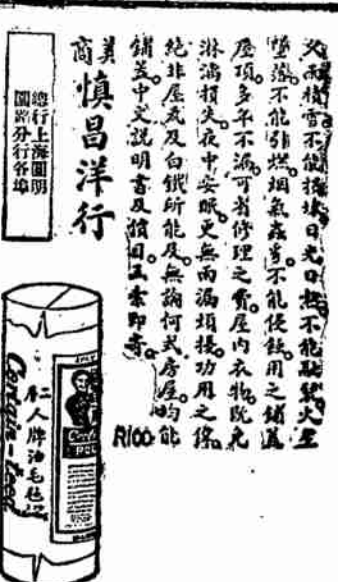 久雨積雪不能損壞日光日熱不能融裂火星
墮落不能引燃烟氣蟲害不能侵蝕用之鋪蓋
屋頂多年不漏可省修理之費屋内衣物既免
淋漓損失夜中安眠更無雨漏煩擾功用之偉
絕非屋瓦及白鐵所能及無論何式房屋均能
鋪蓋中文説明書及價目函索即寄
R100
美商
慎昌洋行
總行上海圓明
園路分行各埠
人牌油毛毡
Certain-teed